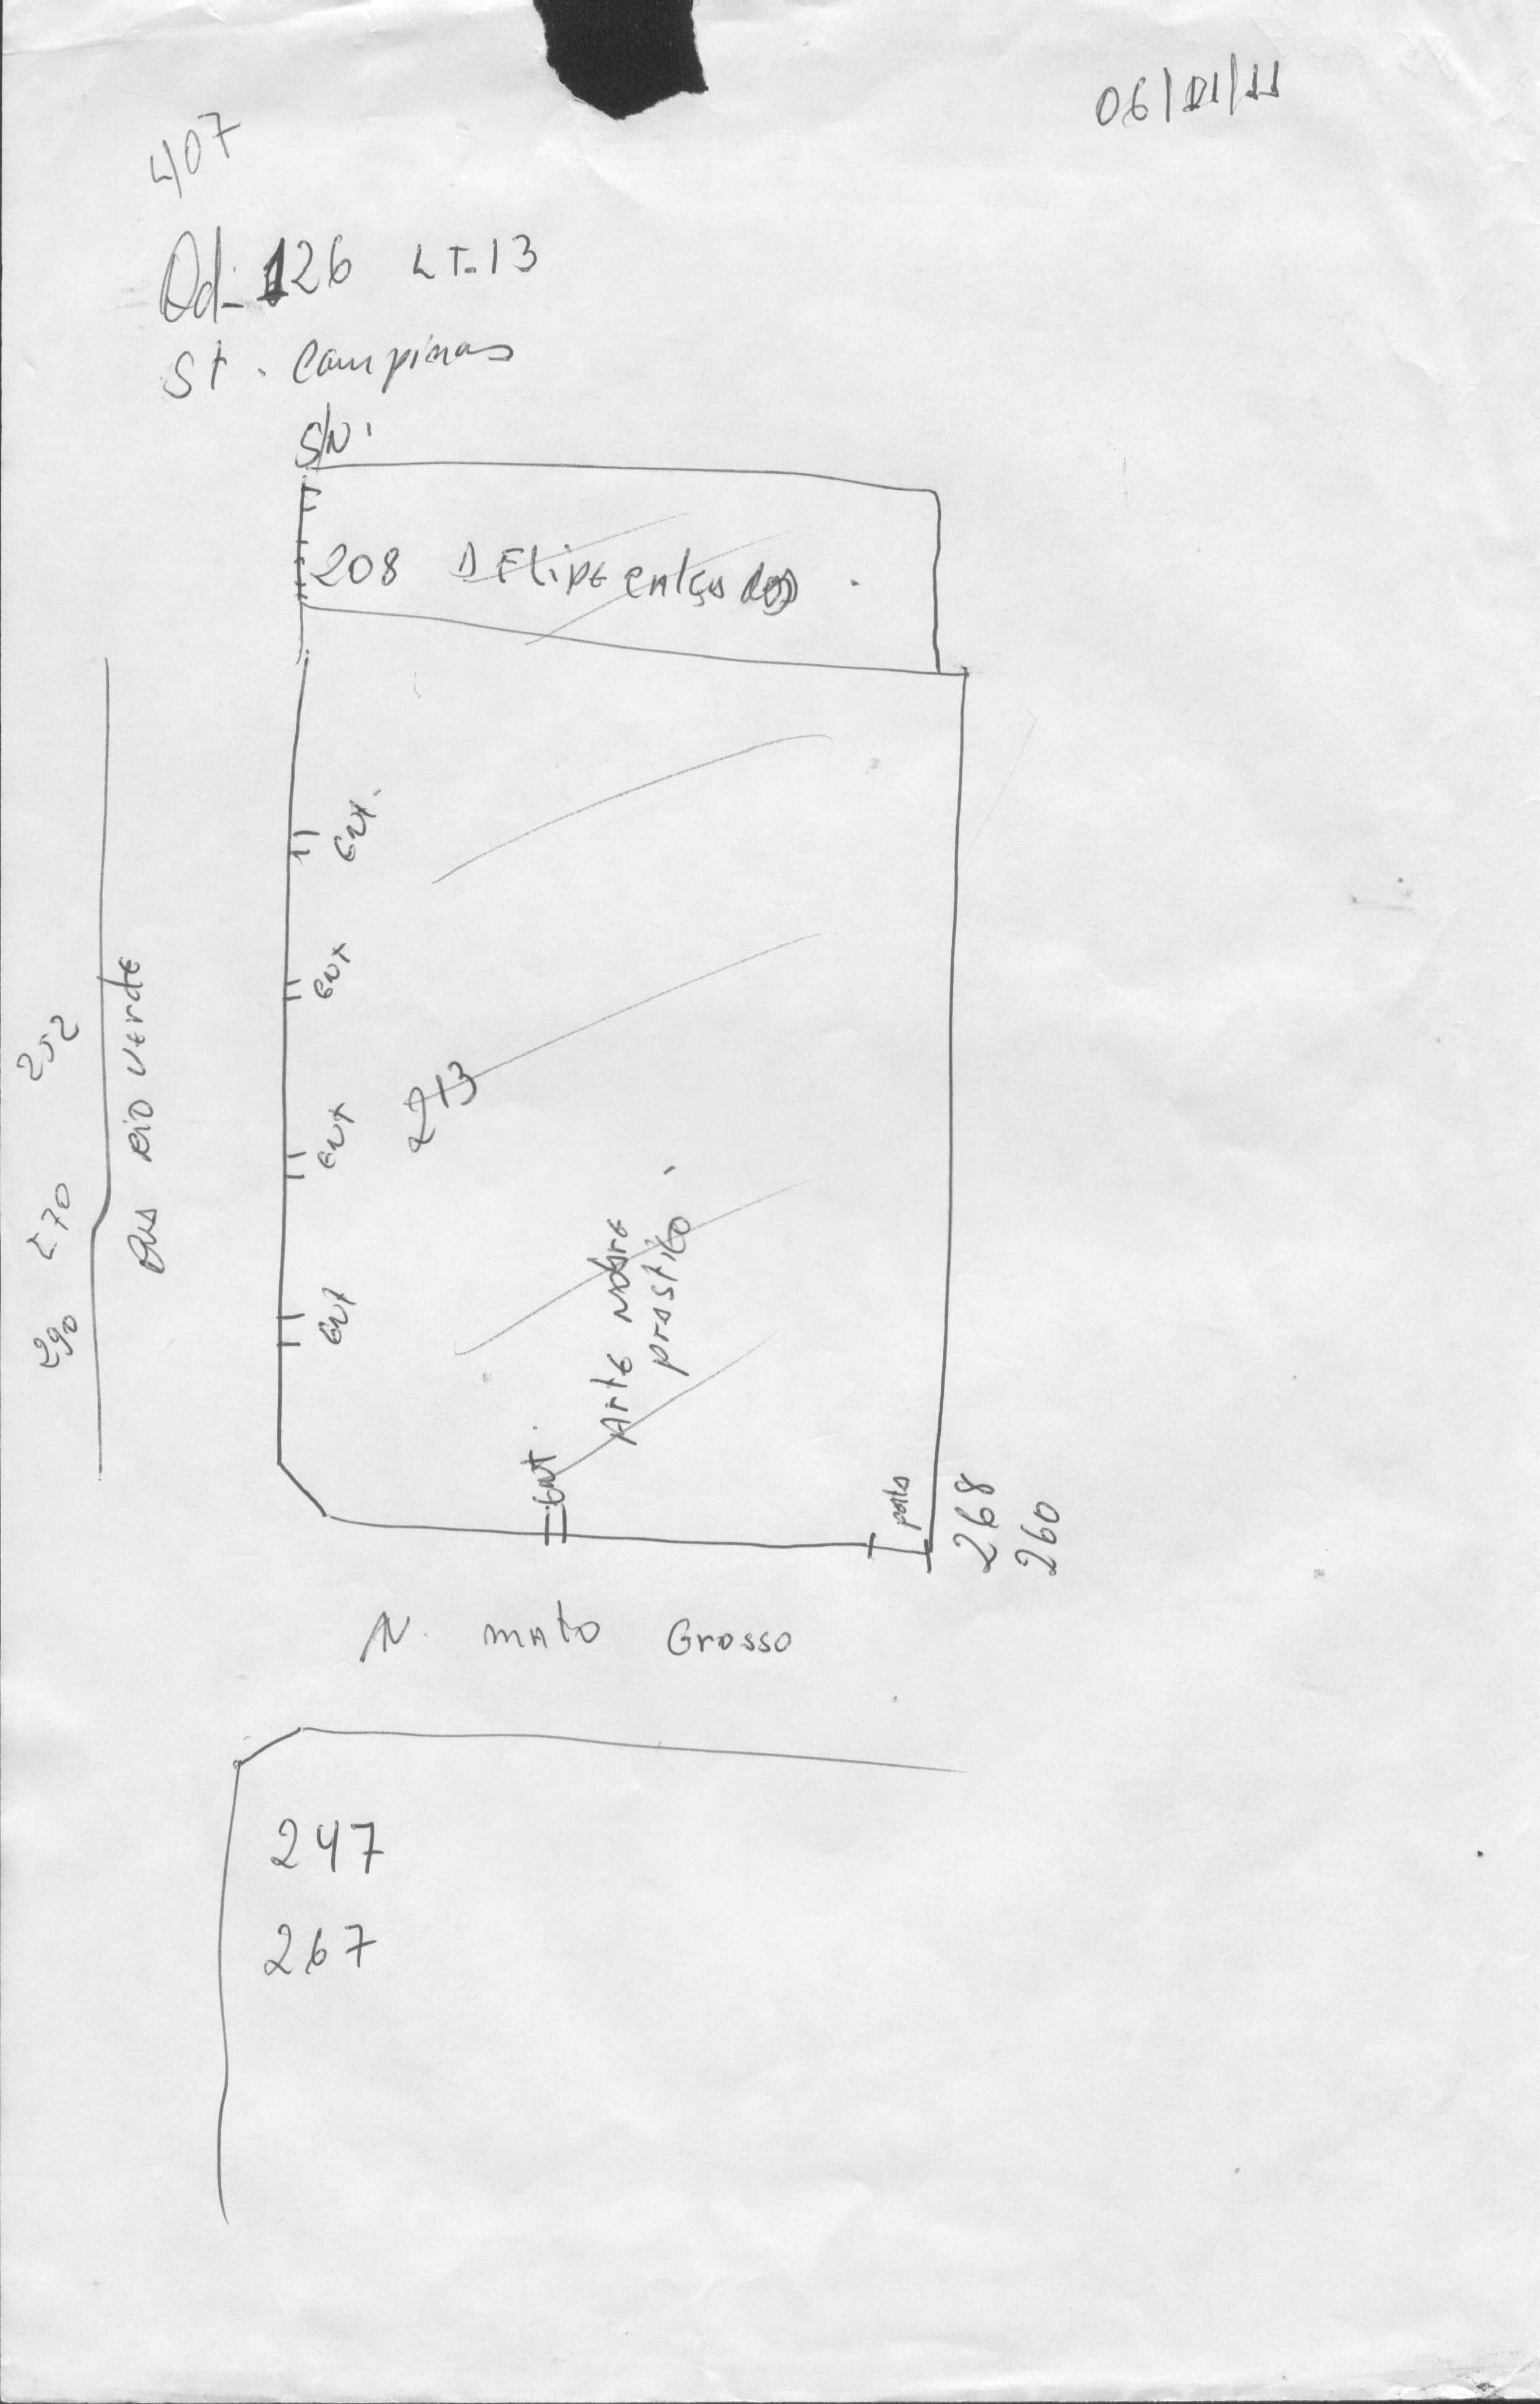 06/01/11
407
Qd- 126 LT-13
St. Campinas
S/N.
208 D Flipe calçados
Ent.
Ent
Ent
Ent
252
270
290
Rua Rio Verde
Arte Nobre
Ent.
268
260
N. Mato Grosso
247
267